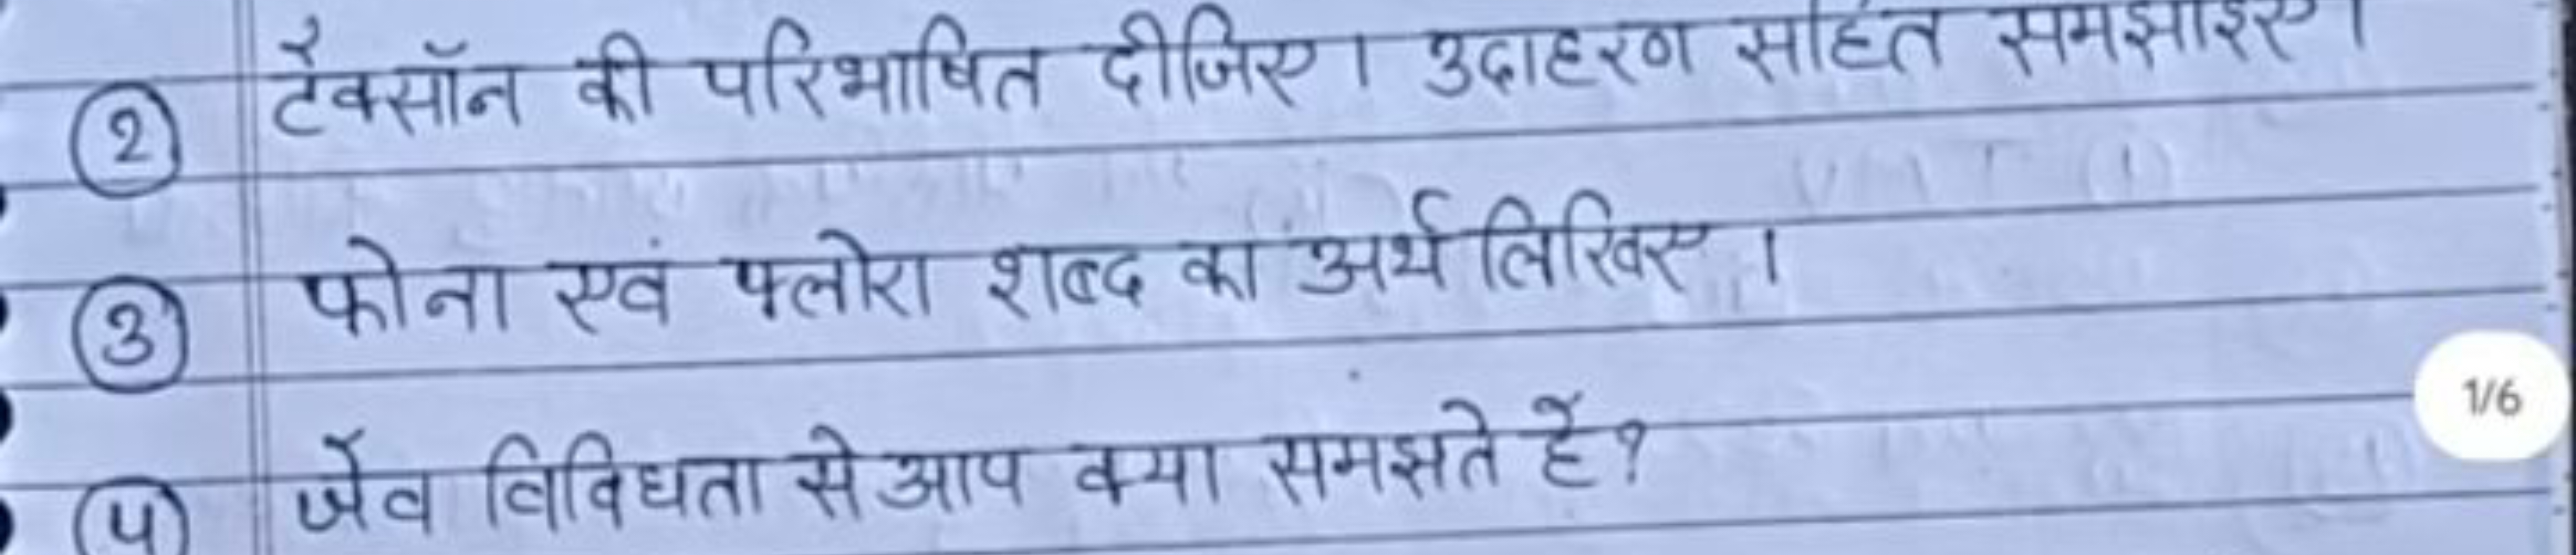 ② टैक्सॉन की परिभाषित दीजिए। उदाहरण सहित समझाइए।
③ फोना एवं फ्लोरा शब्द का अर्थ लिखिए।
1/6
④ जैव विविधता से आप क्या समझते हैं?